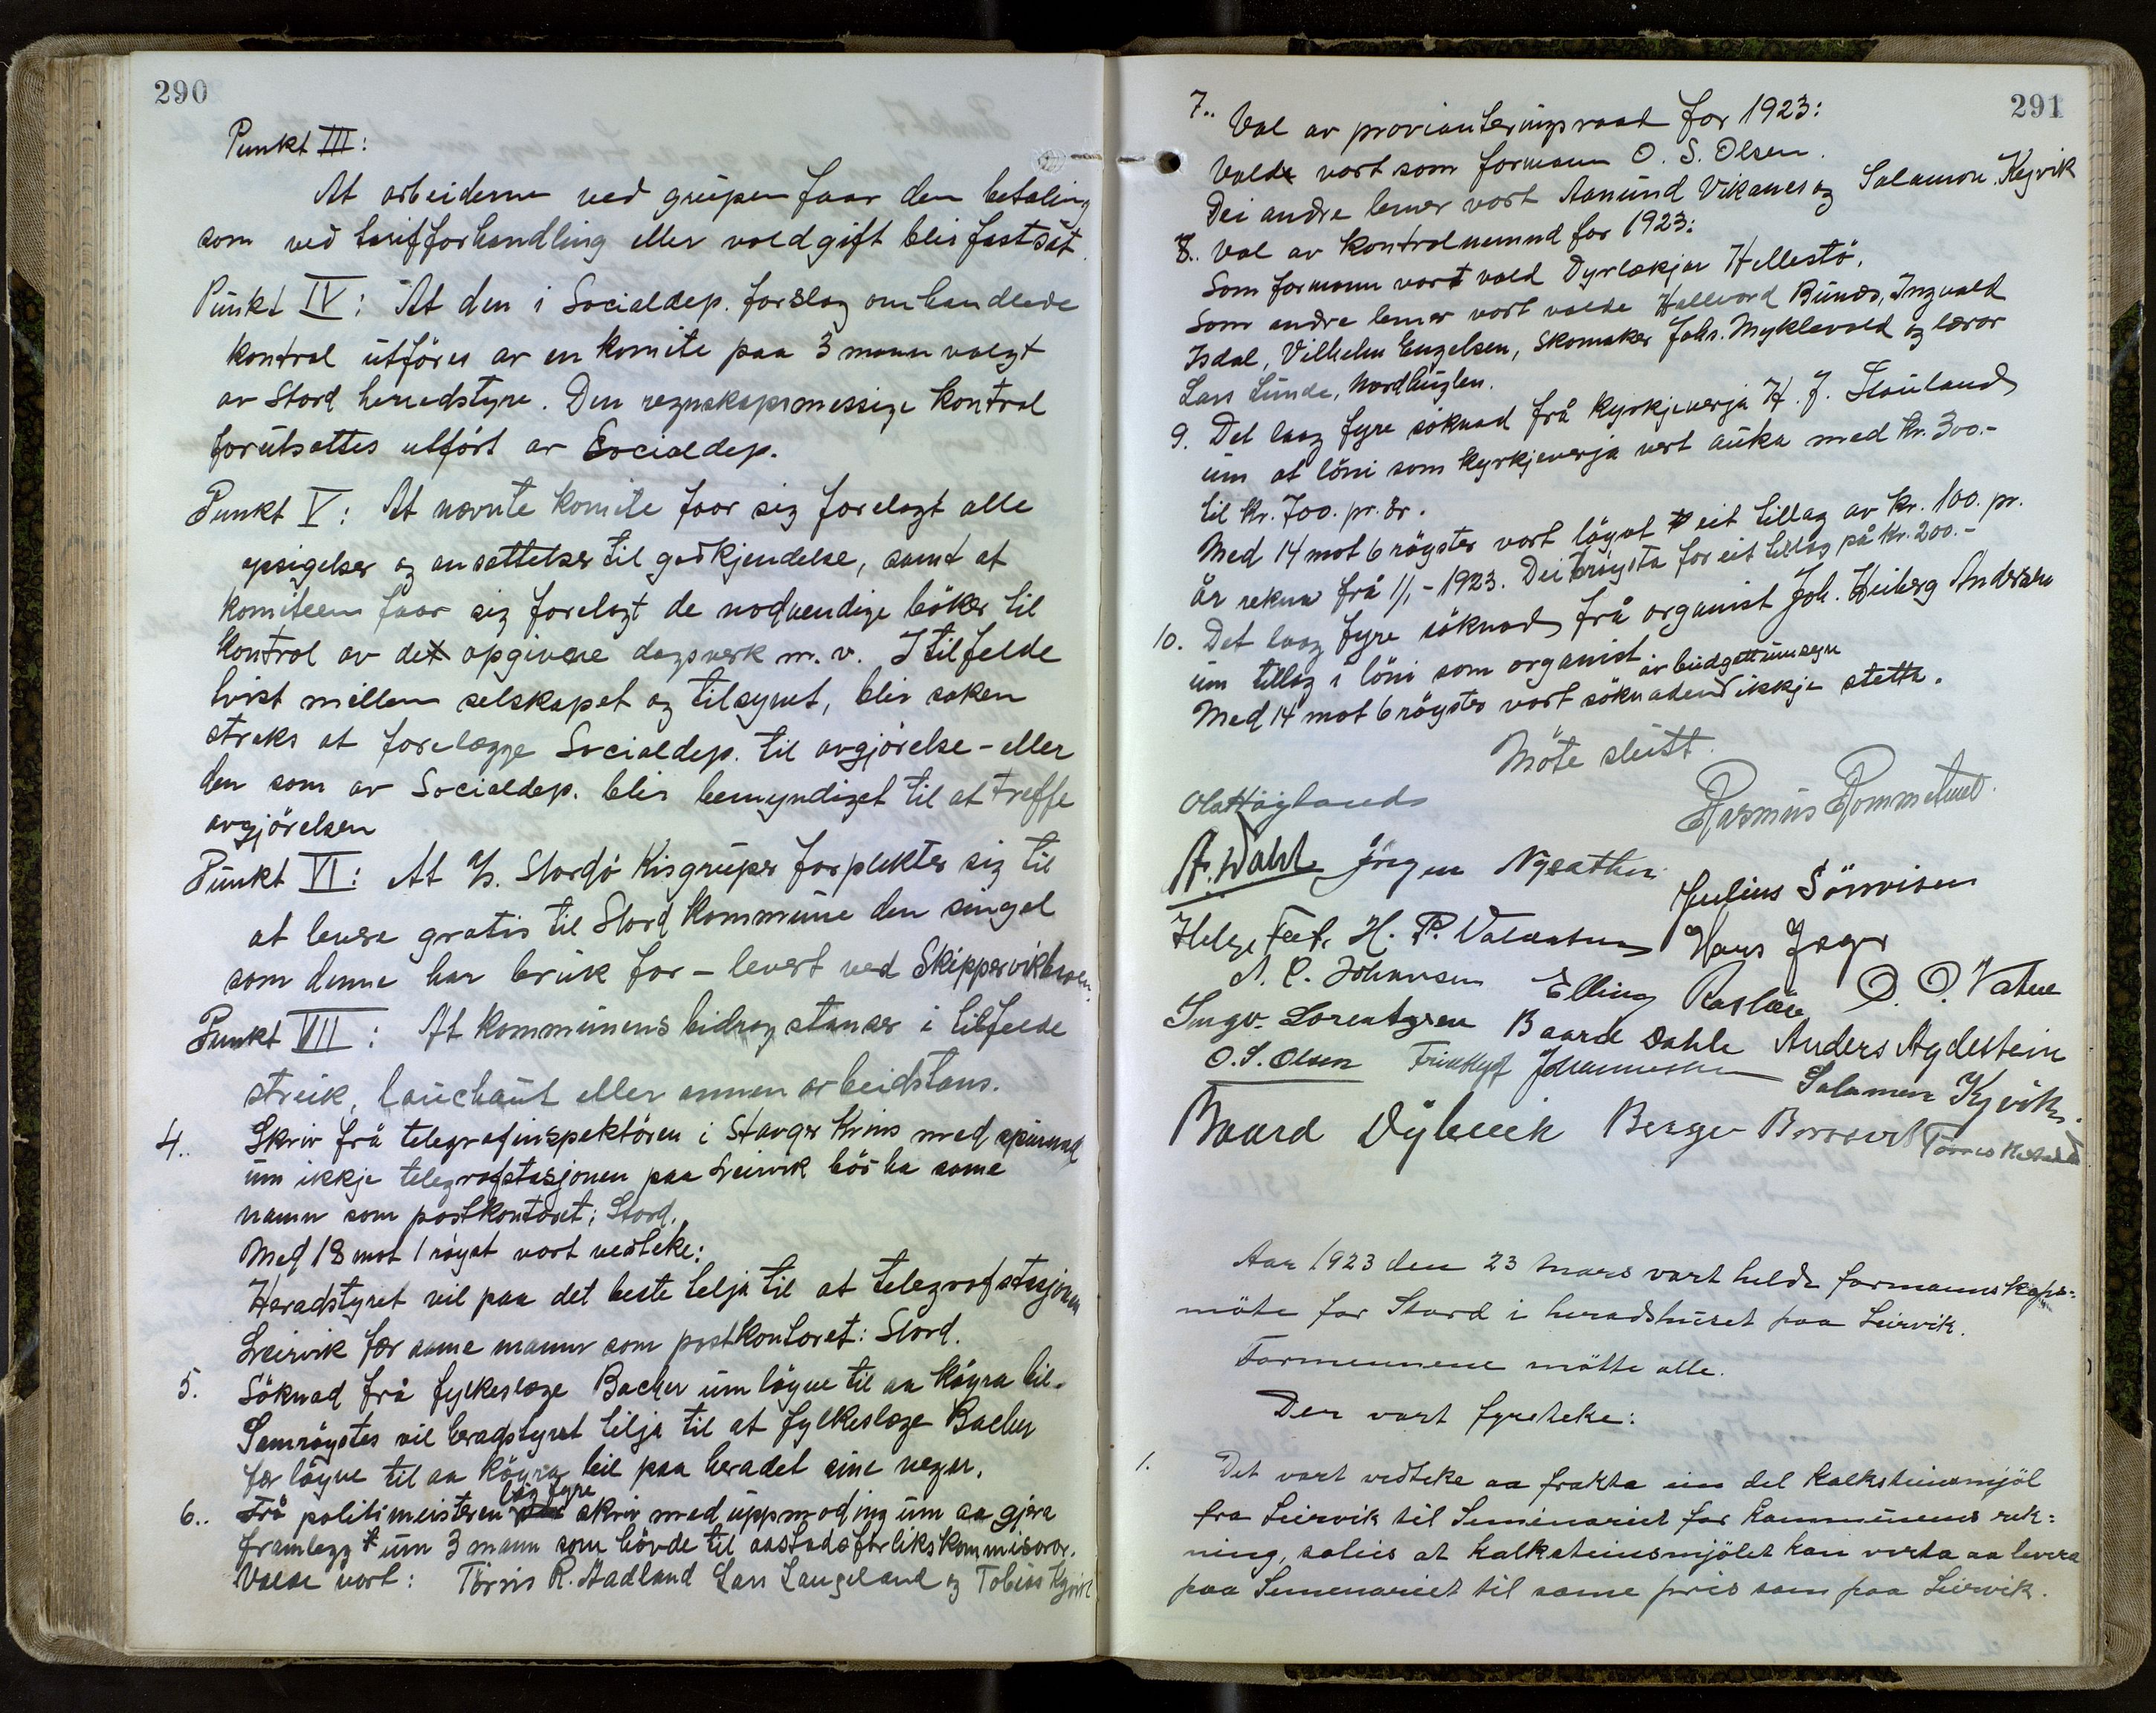 290
Punkt III:
At arbeiderne ved grupen faar den betaling
som ved tarifforhandling eller voldgift blir fastsat.
Punkt IV: At den i Socialdep. forslag omhandlede
kontrol utföres av en komite paa 3 mann valgt
av Stord herredstyre. Den regnskapsmessige kontrol
forutsattes utfört av Socialdep.
Punkt V: At nevnte komite faar sig forelagt alle
opsigelser og ansattelser til godkjendelse, samt at
komiteen faar sig forelagt de nodvendige böker til
kontrol av det opgivne dagsverk m.v. I tilfelde
tvist mellem selskapet og tilsynet, blir saken
straks at forelægge Socialdep. til avgjörelse - eller
den som av Socialdep. blir bemyndiget til at treffe
avgjörelsen
Punkt VI: At A/s. Stordö Kisgruper forplikter sig til
at levere gratis til Stord kommune den singel
som denne har bruk for - levert ved Skippervikbroen.
Punkt VII: At kommunens bidrag stanser i tilfelde
streik, lauchaut eller annen arbeidstans.
4.. Skriv frå telegrafinspektören i Stavger Krins med spurnad
um ikkje telegrafstasjonen paa Leirvik bör ha same
namn som postkontoret; Stord.
Med 18 mot 1 röyst vart vedteke:
Heradstyret vil paa det beste telja til at telegrafstasjonen
Leirvik fær same mann som postkontoret: Stord.
5. Söknad frå fylkeslæge Backer um löyve til aa köyra bil.
Samröystes vil heradstyret tilja til at fylkeslæge Backer
fær löyve til aa köyra bil paa heradet sine vegar.
6.. Frå politimeisteren låg fyre skriv med uppmoding um aa gjera
framlegg um 3 mann som hövde til aastadsforlikskommisærar.
Valde vort: Törris R. Aadland Lars Langeland og Tobias Kyvik
291
7.. Val av provianteringsraad for 1923:
Valde vart som formann O. S. Olsen.
Dei andre lemer vart Aamund Vikanes og Salamon Kyvik
8.. Val av kontrolnemnd for 1923:
Som formann vart vald Dyrlækjar Hellestö.
Som andre lemer vort valde Hallvard Bundo, Ingvald
Isdal, Vilhelm Engelsen, Skomaker Johs. Myklevold og lærar
Lars Lunde, Nordhuglen.
9. Det laag fyre söknad frå kyrkjeverja H. J. Flauland
um at löni som kyrkjeverja vert auka med kr. 300.-
til kr. 700. pr. år.
Med 14 mot 6 röyster vart löyvt eit tillag av kr. 100. pr.
år rekna frå 1/1 - 1923. Dei 6 röysta for eit tillag på kr. 200.-
10. Det laag fyre söknad frå organist Joh. Heiberg Andersen
um tillag i löni som organist.
Med 14 mot 6 röyster vart söknaden av budgettumsyn ikkje stetta.
Möte slutt.
Ola Höyland Rasmus Rommetveit.
A. Dahl Jörgen Nysæther Julius Sörvisen
Helge Tveit. H. P. Valvatne Hans Jager
A. C. Johansen Elling O. O. Vatne
Ingv. Lorentzen Baard Dahle Anders Agdestein
O. S. Olsen Fridthjof Johannessen Salamon Kyvik.
Baard Dybevik Berge
Aar 1923 den 23 mars vart helde formannskaps=
möte for Stord i heradshuset paa Leirvik.
Formennene mötte alle.
Der vart fyreteke:
1. Det vart vedteke aa frakta ein del kalksteinsmjöl
fra Leirvik til Seminariet for kommunens rek=
ning, soleis at kalksteinsmjölet kan verta aa levera
paa Semenariet til same pris som paa Leirvik.